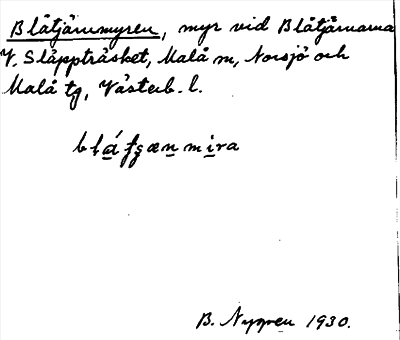 Blåtjärnmyren, myr vid Blåtjärnarna
V. Släppträsket, Malå sn, Norsjö och
Malå tg, Västerb. l.
B. Nygren 1930.